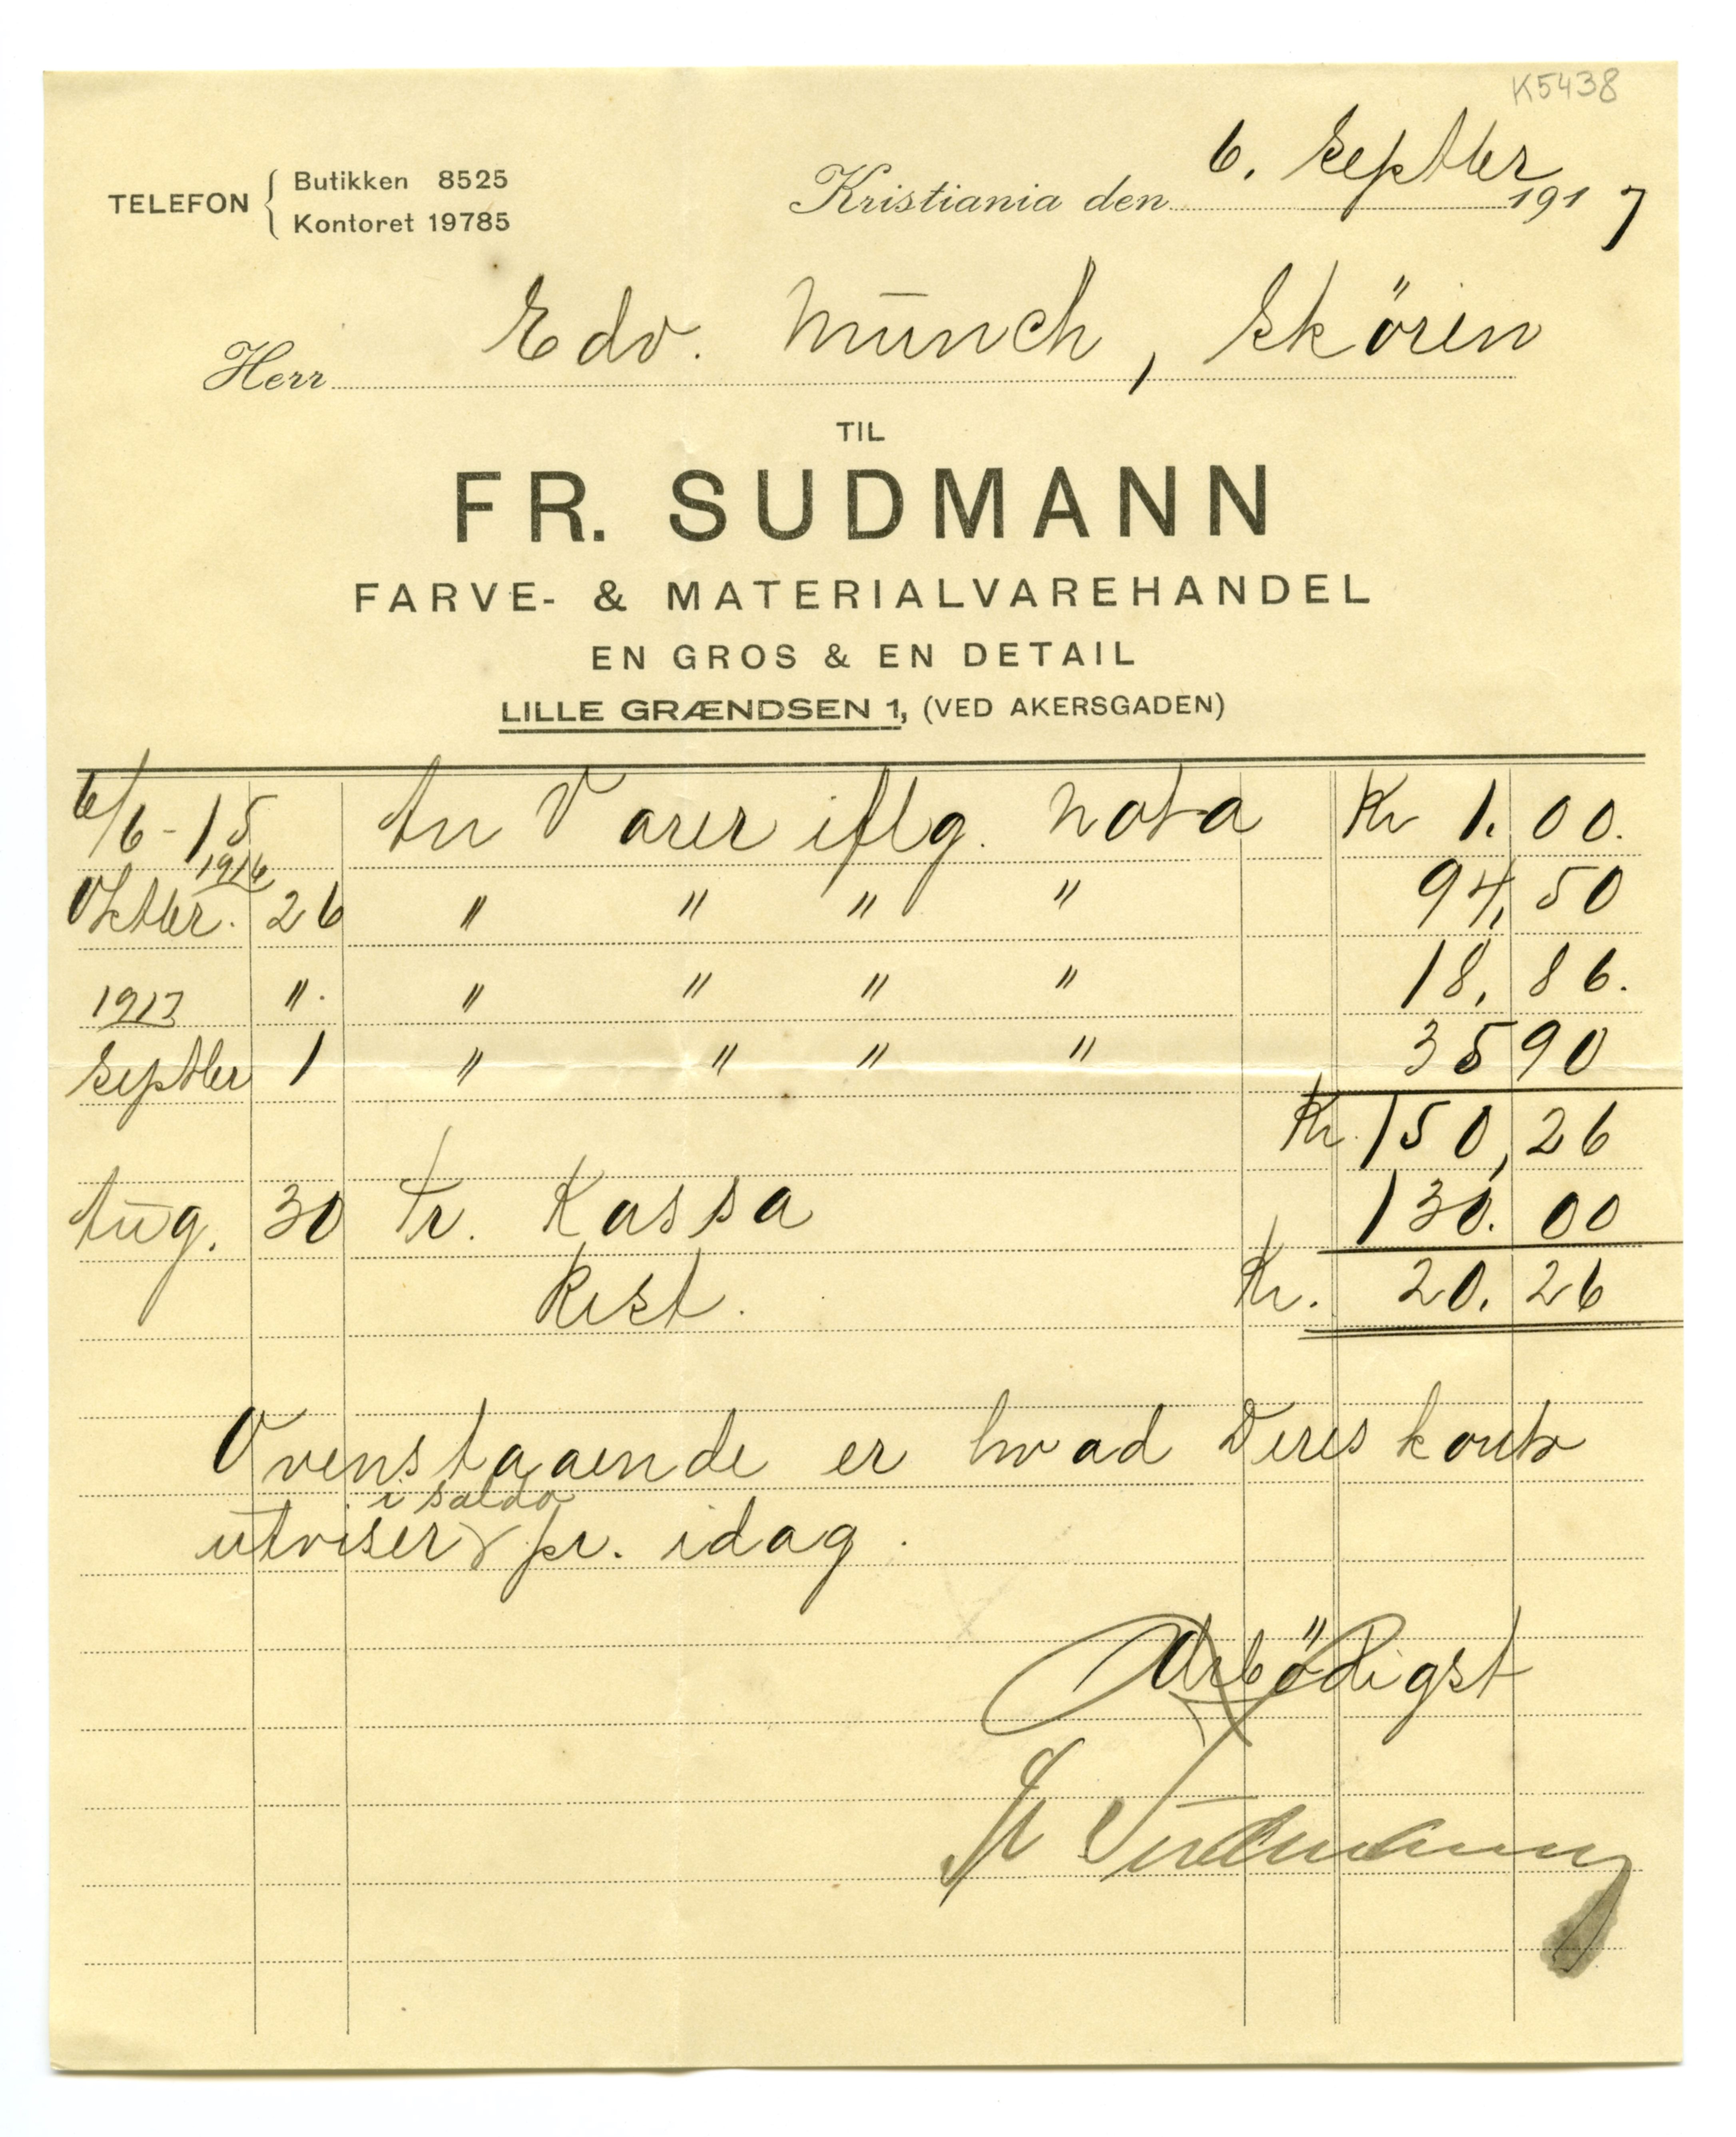 K5438
TELEFON { Butikken 8525
Kontoret 19785
Kristiania den 6. Septbr 1917
Herr Edv. Münch, Sköien
TIL
FR. SUDMANN
FARVE- & MATERIALVAREHANDEL
EN GROS & EN DETAIL
LILLE GRÆNDSEN 1, (VED AKERSGADEN)
6/6-15 An Varer iflg. Nota Kr 1.00.
1916
Oktbr. 26 " " " " 94,50
" " " " " 18,86.
1917
Septbr 1 " " " " 35 90
Kr. 150,26
Aug. 30 Pr. Kassa 130.00
Rest. Kr. 20.26
Ovenstaaende er hvad Deres konto
i saldo
utviser pr. idag.
Ærbödigst
Fr Sudmann